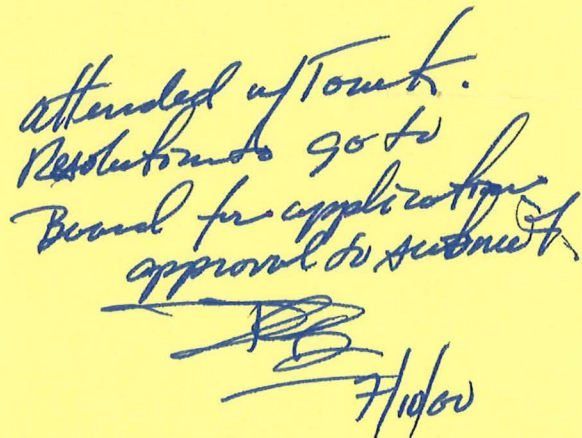 attended w/Tom K.
Resolution to go to
Board for application
approval to submit
7/10/00